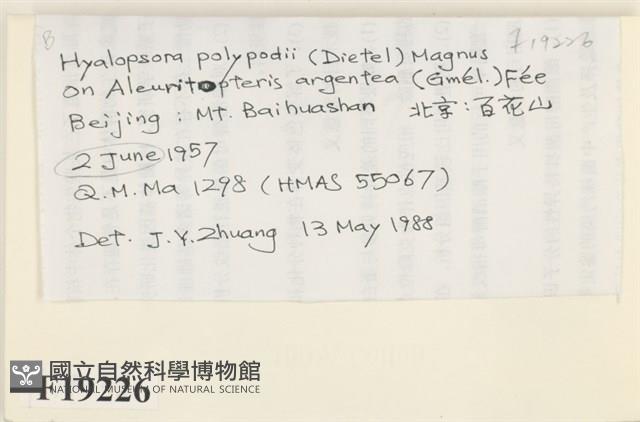 B
F19226
Hyalopsora polypodii (Dietel) Magnus
on Aleuritopteris argentea (Gmél.) Fée
Beijing : Mt. Baihuashan 北京:百花山
2 June 1957
Q.M.Ma 1298 (HMAS 55067)
Det. J.Y.Zhuang 13 May 1988
國立自然科學博物館
NATIONAL MUSEUM OF NATURAL SCIENCE
F19226